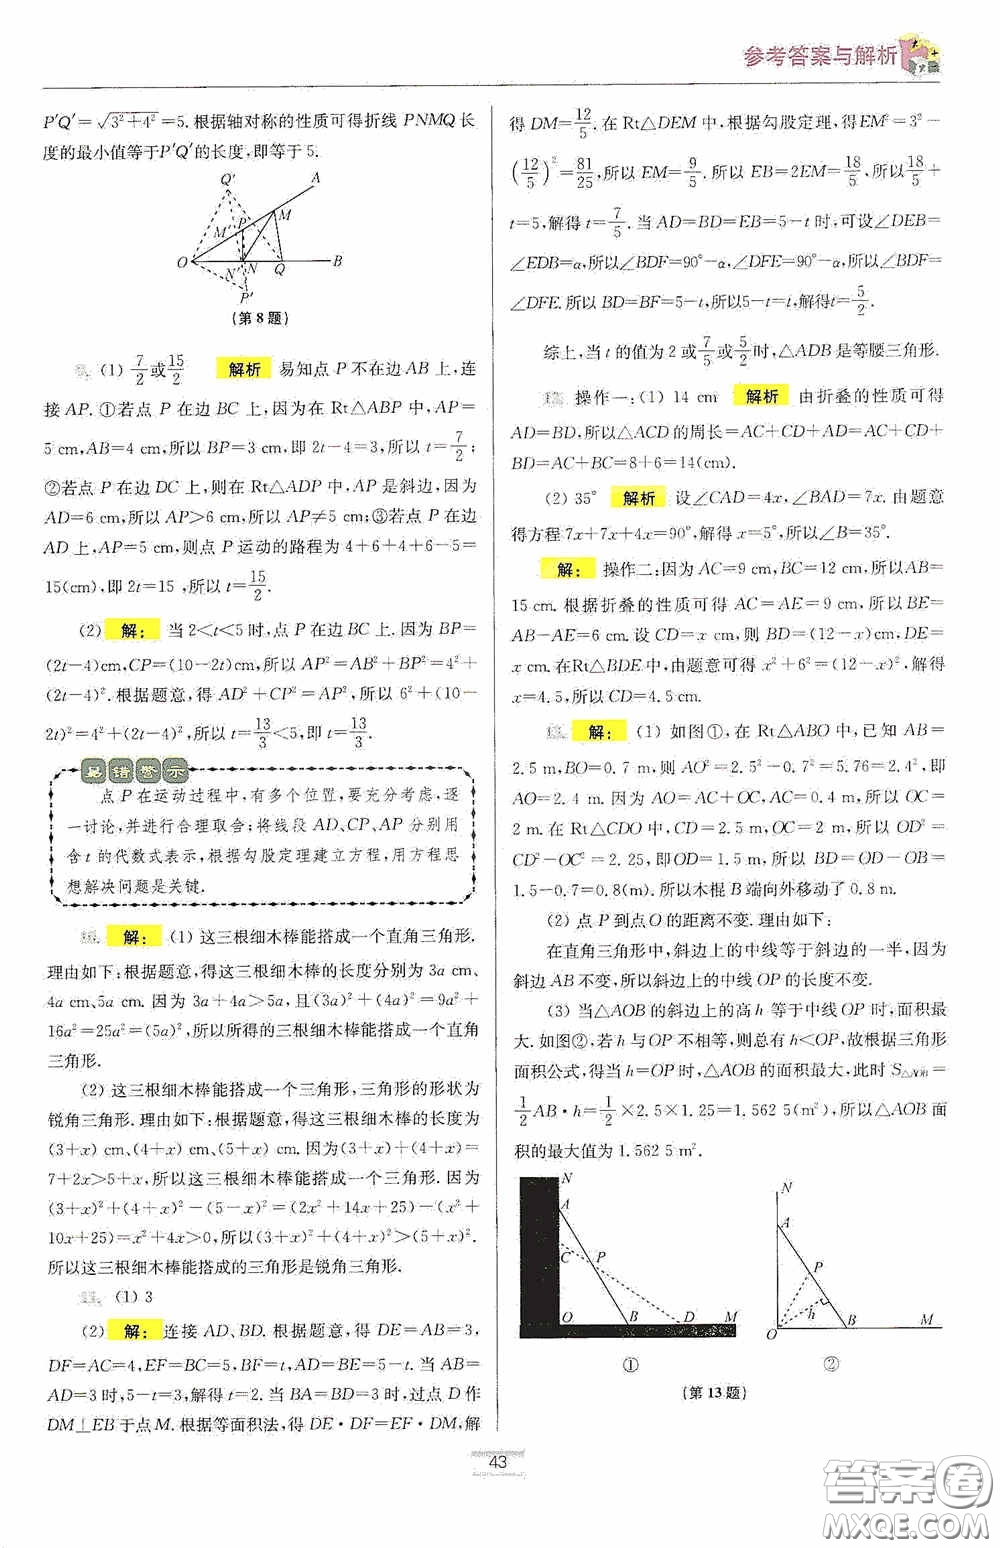 参考答案与解析
P'Q'=√(3²+4²)=5.根据轴对称的性质可得折线 PNMQ 长
度的最小值等于P'Q'的长度,即等于 5.
Q'
A
M
P
M'
O
N'
N
Q
B
P'
(第 8 题)
(1) 7/2或15/2 解析 易知点 P 不在边 AB 上,连
接 AP. ①若点 P 在边 BC 上,因为在 Rt△ABP 中,AP=
5 cm,AB=4 cm,所以 BP=3 cm,即 2t-4=3,所以 t=7/2;
②若点 P 在边 DC 上,则在 Rt△ADP 中,AP 是斜边,因为
AD=6 cm,所以 AP>6 cm,所以 AP≠5 cm;③若点 P 在边
AD 上,AP=5 cm,则点 P 运动的路程为 4+6+4+6-5=
15(cm),即 2t=15 ,所以 t=15/2.
(2) 解: 当 2<t<5 时,点 P 在边 BC 上.因为 BP=
(2t-4)cm,CP=(10-2t)cm,所以 AP²=AB²+BP²=4²+
(2t-4)².根据题意,得 AD²+CP²=AP²,所以 6²+(10-
2t)²=4²+(2t-4)²,所以 t=13/3<5,即 t=13/3.
易错警示
点 P 在运动过程中,有多个位置,要充分考虑,逐
一讨论,并进行合理取舍;将线段 AD、CP、AP 分别用
含 t 的代数式表示,根据勾股定理建立方程,用方程思
想解决问题是关键.
解: (1) 这三根细木棒能搭成一个直角三角形.
理由如下:根据题意,得这三根细木棒的长度分别为 3a cm、
4a cm、5a cm. 因为 3a+4a>5a,(3a)²+(4a)²=9a²+
16a²=25a²=(5a)²,所以所得的三根细木棒能搭成一个直角
三角形.
(2) 这三根细木棒能搭成一个三角形,三角形的形状为
锐角三角形.理由如下:根据题意,得这三根细木棒的长度为
(3+x) cm、(4+x) cm、(5+x) cm. 因为 (3+x)+(4+x)=
7+2x>5+x,所以这三根细木棒能搭成一个三角形. 因为
(3+x)²+(4+x)²-(5-x)²=(2x²+14x+25)-(x²+
10x+25)=x²+4x>0,所以(3+x)²+(4+x)²>(5+x)².
所以这三根细木棒能搭成的三角形是锐角三角形.
(1) 3
(2) 解: 连接 AD、BD. 根据题意,得 DE=AB=3,
DF=AC=4,EF=BC=5,BF=t,AD=BE=5-t. 当 AB=
AD=3 时,5-t=3,解得 t=2. 当 BA=BD=3 时,过点 D 作
DM⊥EB 于点 M. 根据等面积法,得 DE·DF=EF·DM,解
得 DM=12/5. 在 Rt△DEM 中,根据勾股定理,得EM²=3²-
(12/5)²=81/25,所以 EM=9/5. 所以 EB=2EM=18/5,所以18/5+
t=5,解得 t=7/5. 当 AD=BD=EB=5-t 时,可设∠DEB=
∠EDB=α,所以∠BDF=90°-α,∠DFE=90°-α,所以∠BDF=
∠DFE.所以 BD=BF=5-t,所以5-t=t,解得t=5/2.
综上,当 t 的值为 2 或7/5或5/2时,△ADB 是等腰三角形.
操作一:(1) 14 cm 解析 由折叠的性质可得
AD=BD,所以△ACD 的周长=AC+CD+AD=AC+CD+
BD=AC+BC=8+6=14(cm).
(2) 35° 解析 设∠CAD=4x,∠BAD=7x. 由题意
得方程7x+7x+4x=90°,解得 x=5°,所以∠B=35°.
解: 操作二:因为 AC=9 cm,BC=12 cm,所以AB=
15 cm. 根据折叠的性质可得 AC=AE=9 cm,所以 BE=
AB-AE=6 cm. 设 CD=x cm,则 BD=(12-x)cm,DE=
x cm. 在Rt△BDE 中,由题意可得 x²+6²=(12-x)²,解得
x=4.5,所以 CD=4.5 cm.
解: (1) 如图①,在 Rt△ABO 中,已知 AB=
2.5 m,BO=0.7 m,则 AO²=2.5²-0.7²=5.76=2.4²,即
AO=2.4 m. 因为 AO=AC+OC,AC=0.4 m,所以 OC=
2 m. 在 Rt△CDO 中,CD=2.5 m,OC=2 m,所以 OD²=
CD²-OC²=2.25,即OD=1.5 m,所以 BD=OD-OB=
1.5-0.7=0.8(m).所以木棍 B 端向外移动了 0.8 m.
(2) 点 P 到点 O 的距离不变. 理由如下:
在直角三角形中,斜边上的中线等于斜边的一半,因为
斜边 AB 不变,所以斜边上的中线 OP 的长度不变.
(3) 当△AOB 的斜边上的高 h 等于中线 OP 时,面积最
大. 如图②,若 h 与 OP 不相等,则总有 h<OP,故根据三角形
面积公式,得当 h=OP 时,△AOB 的面积最大,此时 S△AOB=
1/2AB·h=1/2×2.5×1.25=1.562 5(m²),所以△AOB 面
积的最大值为 1.562 5 m².
N
A
C
P
O
B
D
M
①
N
A
P
h
O
B
M
②
(第 13 题)
43
答案圈
MXQE.COM